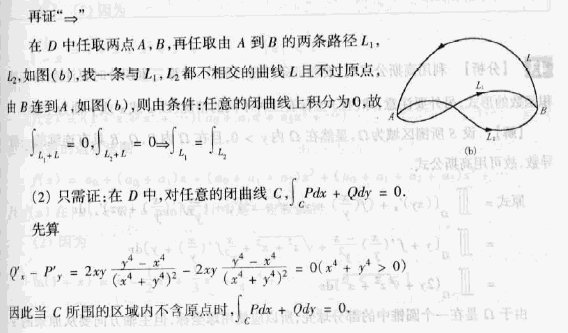 再证“⇒”
在 D 中任取两点 A,B,再任取由 A 到 B 的两条路径 L₁,
L₂,如图(b),找一条与 L₁,L₂ 都不相交的曲线 L 且不过原点,
由 B 连到 A,如图(b),则由条件:任意的闭曲线上积分为 0,故
∫_{L₁+L} = 0,∫_{L₂+L} = 0⇒∫_{L₁} = ∫_{L₂}
A
B
L
L₁
L₂
(b)
(2) 只需证:在 D 中,对任意的闭曲线 C,∫_C Pdx + Qdy = 0.
先算
Q′ₓ − P′_y = 2xy (y⁴ − x⁴)/(x⁴ + y⁴)² − 2xy (y⁴ − x⁴)/(x⁴ + y⁴)² = 0(x⁴ + y⁴ > 0)
因此当 C 所围的区域内不含原点时,∫_C Pdx + Qdy = 0.